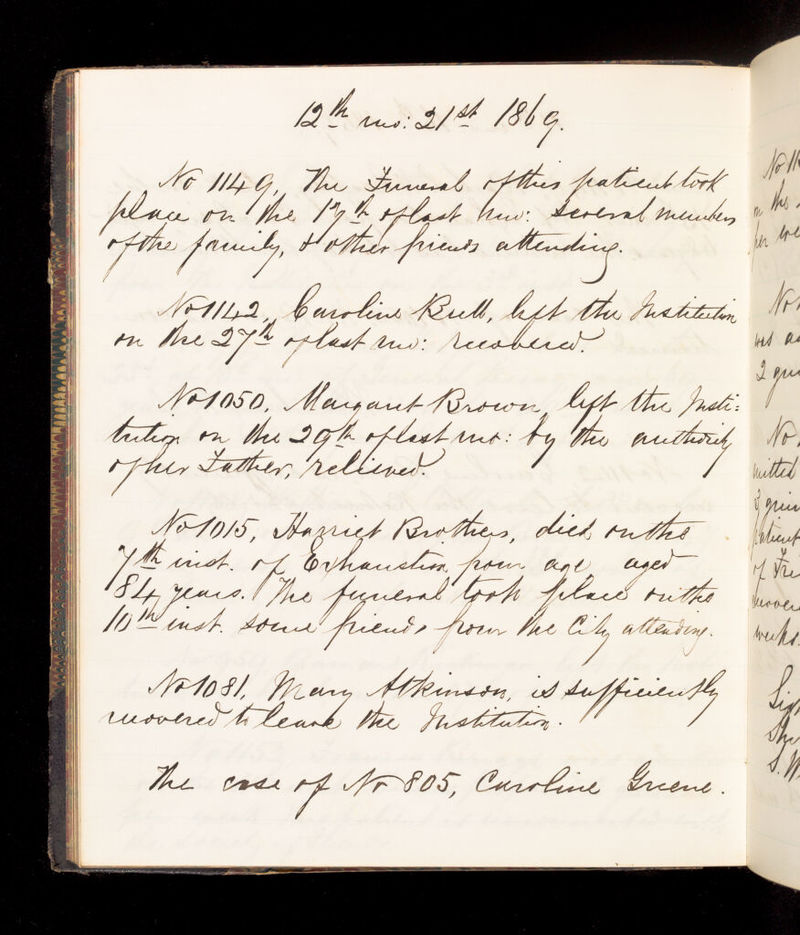 12th mo: 21st 1869.
No 1149, The Funeral of this patient took
place on the 17th of last mo: several members
of the family, & other friends attending.
No 1142, Caroline Brett, left the Institution
on the 27th of last mo: recovered.
No 1050, Margaret Brown, left the Insti:
tution on the 29th of last mo: by the authority
of her Father, relieved.
No 1015, Harriet Brothers, died on the
7th inst. of Exhaustion from age aged
84 years. The funeral took place on the
10th inst. some friends from the City attending.
No 1081, Mary Atkinson, is sufficiently
recovered to leave the Institution.
The case of No 805, Caroline Greene.